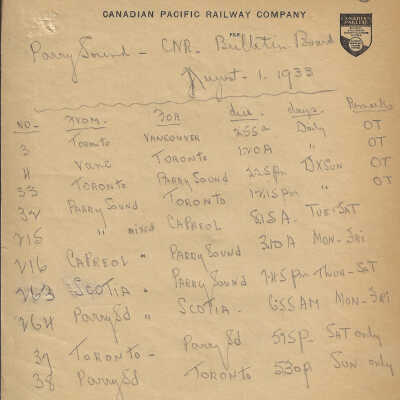 CANADIAN PACIFIC RAILWAY COMPANY
FILE
CANADIAN PACIFIC
Parry Sound - CNR. Bulletin Board
August. 1. 1933
NO- FROM. FOR due. days. Remarks
3 Toronto VANCOUVER 255a Daily OT
4 Vanc TORONTO 120A " OT
33 TORONTO PARRY Sound 325pm DXSUN OT
34 PARRY SOUND TORONTO 1215pm " OT
215 " mixed CAPREOL 815A. TUE-SAT
216 CAPREOL " PARRY Sound 310A MON-Fri
263 SCOTIA " PARRY Sound 245pm THUR-SAT
264 Parry Sd " SCOTIA. 655AM MON-Fri
37 TORONTO - Parry Sd 595p- SAT only
38 Parry Sd TORONTO 530p SUN only